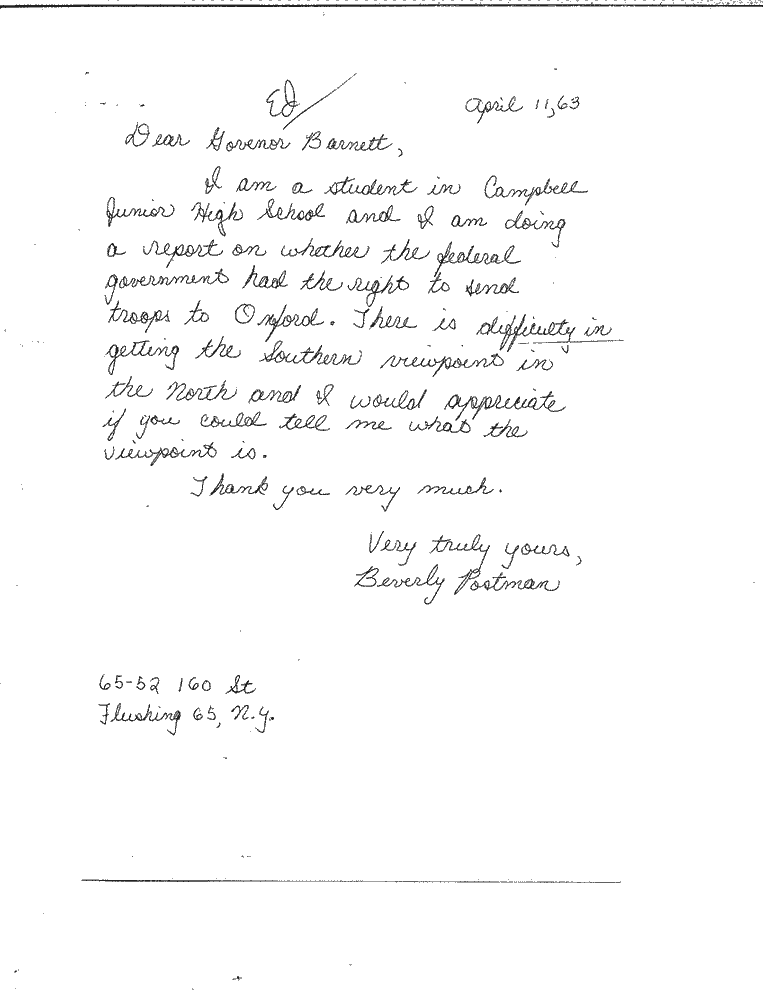 Ed
April 11, 63
Dear Govenor Barnett,
I am a student in Campbell
Junior High School and I am doing
a report on whether the federal
government had the right to send
troops to Oxford. There is difficulty in
getting the Southern viewpoint in
the North and I would appreciate
if you could tell me what the
viewpoint is.
Thank you very much.
Very truly yours,
Beverly Postman
65-52 160 St
Flushing 65, N.Y.